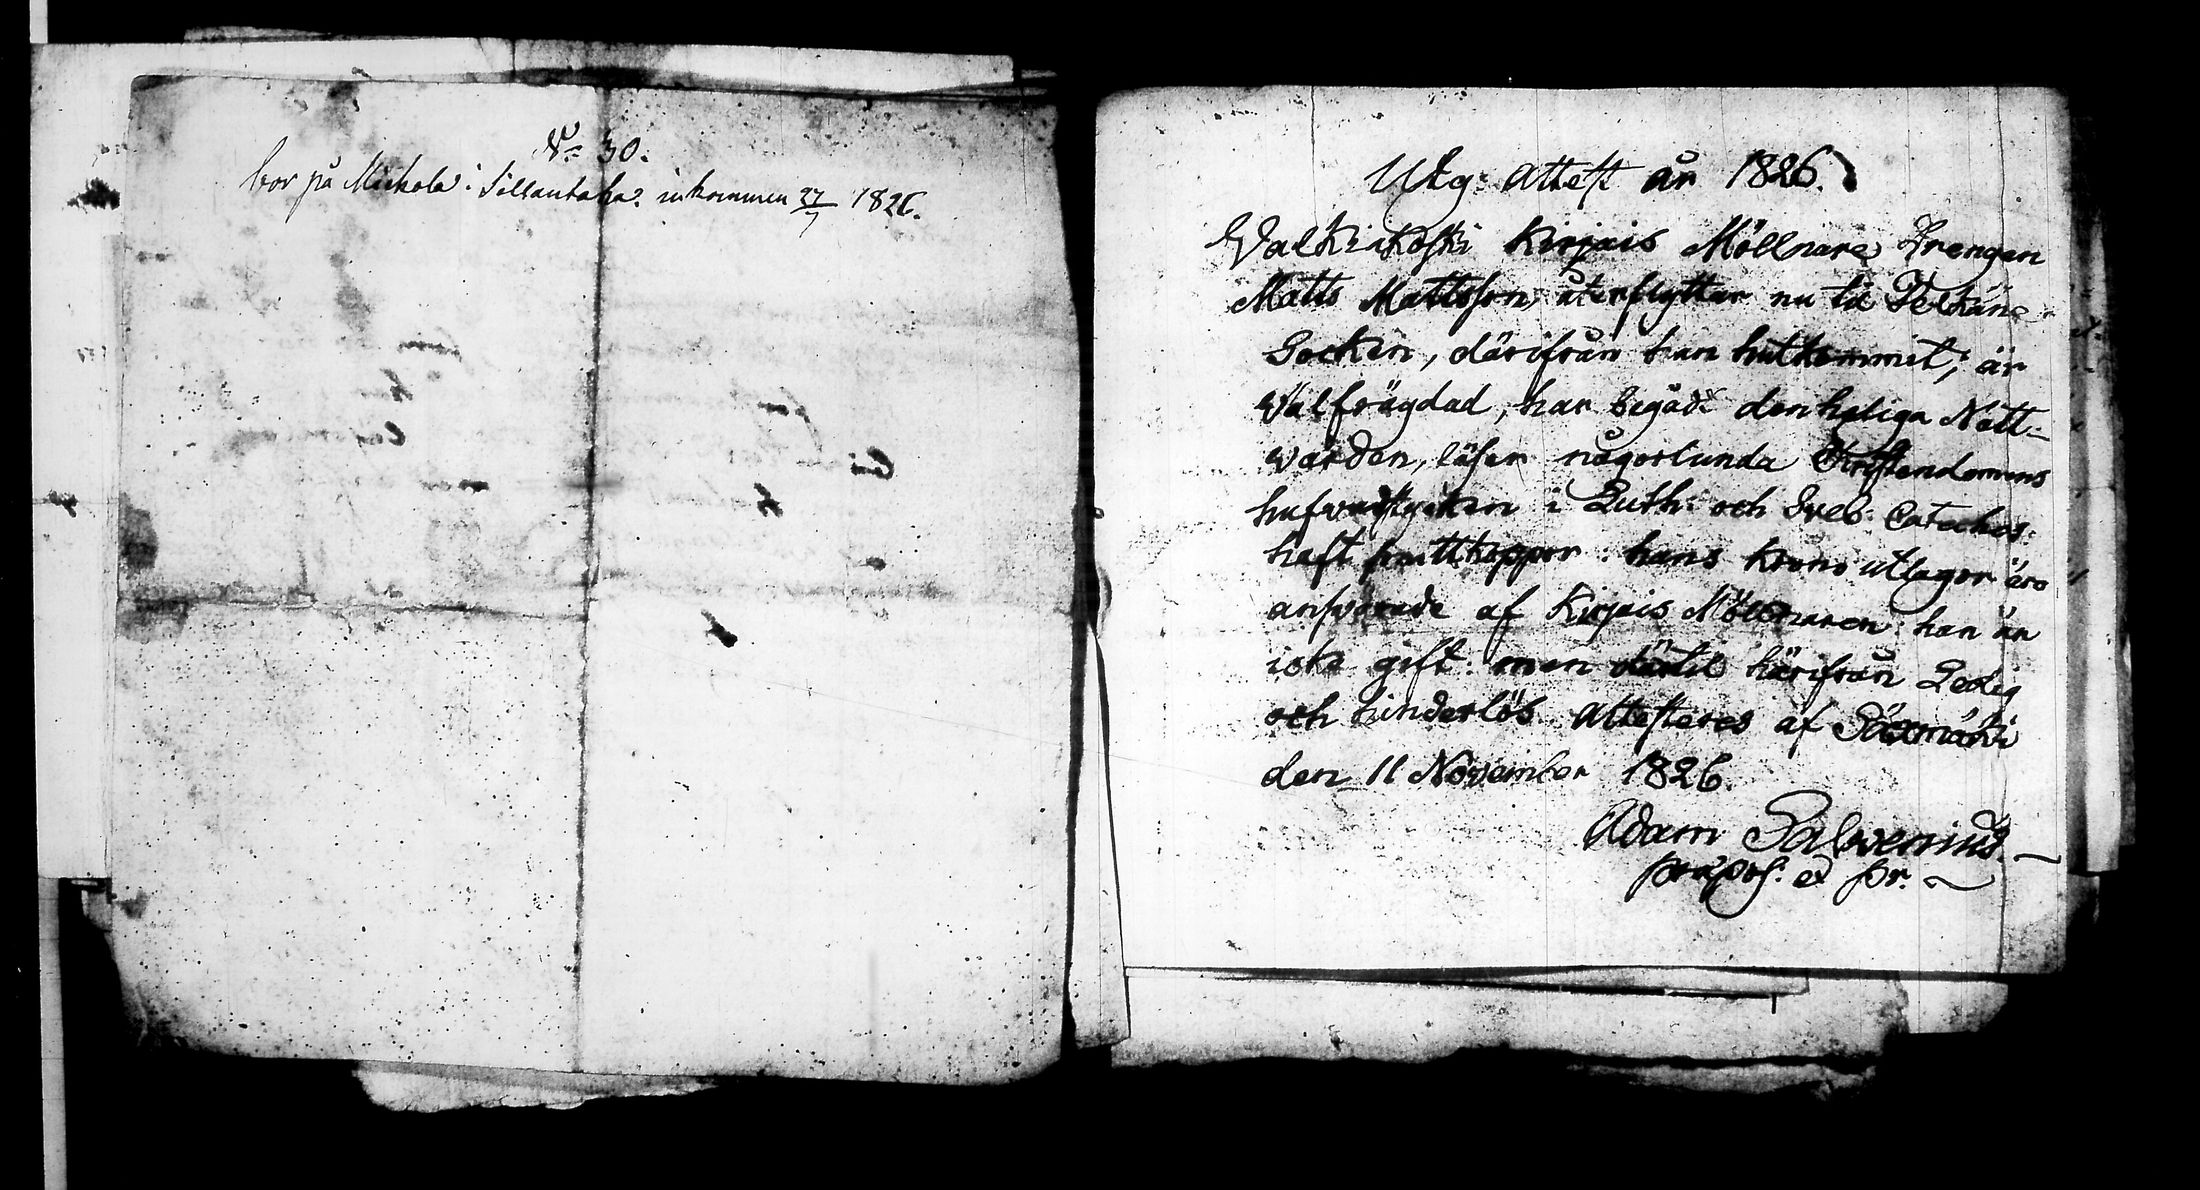 No 30.
bor på Mickola i Sillantaka. inkommen 27/7 1826.
Utg: attest år 1826.
Walkiakoski Kirjais Möllnare Drengen
Matts Mattsson, återflyttar nu til Pelkäne
Socken, därifrån han hitkommit; är
Wälfrägdad, har begådt den heliga Natt-
warden, läser någorlunda Christendomens
hufvudstycken i Luth: och Sveb. Cateches:
haft smittkoppor. hans krono utlagor äro
answarade af Kirjais Möllnaren. han är
icke gift. men därtil härifrån Ledig
och hinderlös. attesteres af Säxmäki
den 11 November 1826.
Adam Salvenius
præpos: et pr.